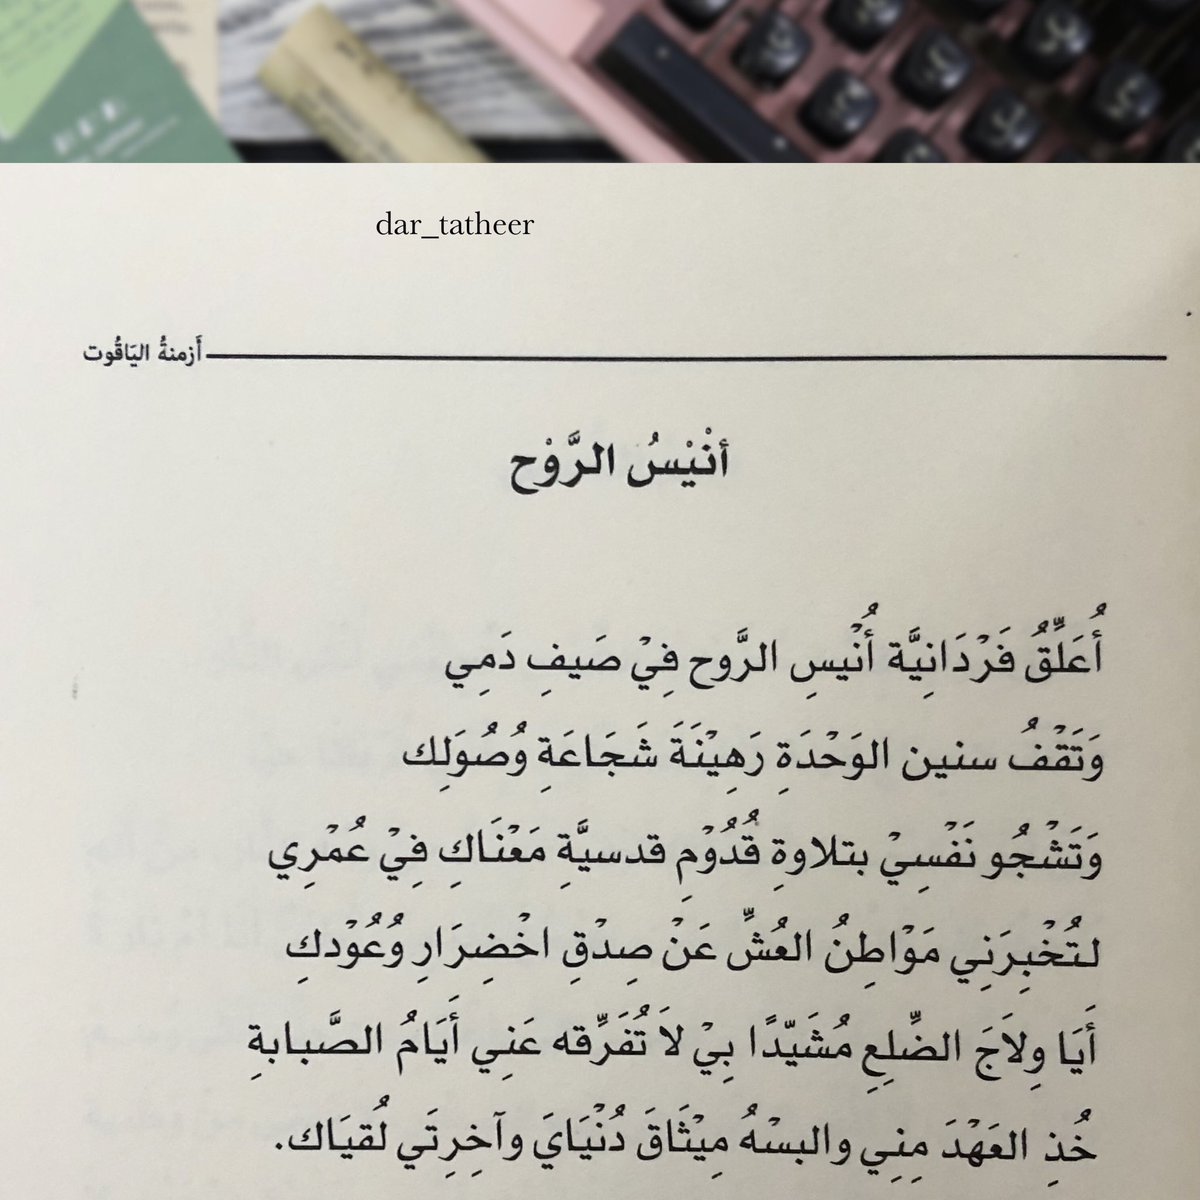 dar_tatheer
أَزمنةُ اليَاقُوت
أنْيْسُ الرَّوْح
أُعَلِّقُ فَرْدَانِيَّة أُنْيسِ الرَّوح فِيْ صَيفِ دَمِي
وَتَقْفُ سنين الوَحْدَةِ رَهِيْنَةَ شَجَاعَةِ وُصُوَلِك
وَتَشْجُو نَفْسِيْ بتلاوةِ قُدُوْمِ قدسيَّةِ مَعْنَاكِ فِيْ عُمْرِي
لتُخْبِرَنِي مَوْاطِنُ العُشِّ عَنْ صِدْقِ اخْضِرَارِ وُعُوْدكِ
أَيَا وِلاَجَ الضِّلعِ مُشَيّدًا بِيْ لاَ تُفَرِّقه عَنِي أَيَامُ الصَّبابةِ
خُذِ العَهْدَ مِنِي والبسْهُ مِيْثَاقَ دُنْيَايَ وآخِرِتَي لُقيَاك.